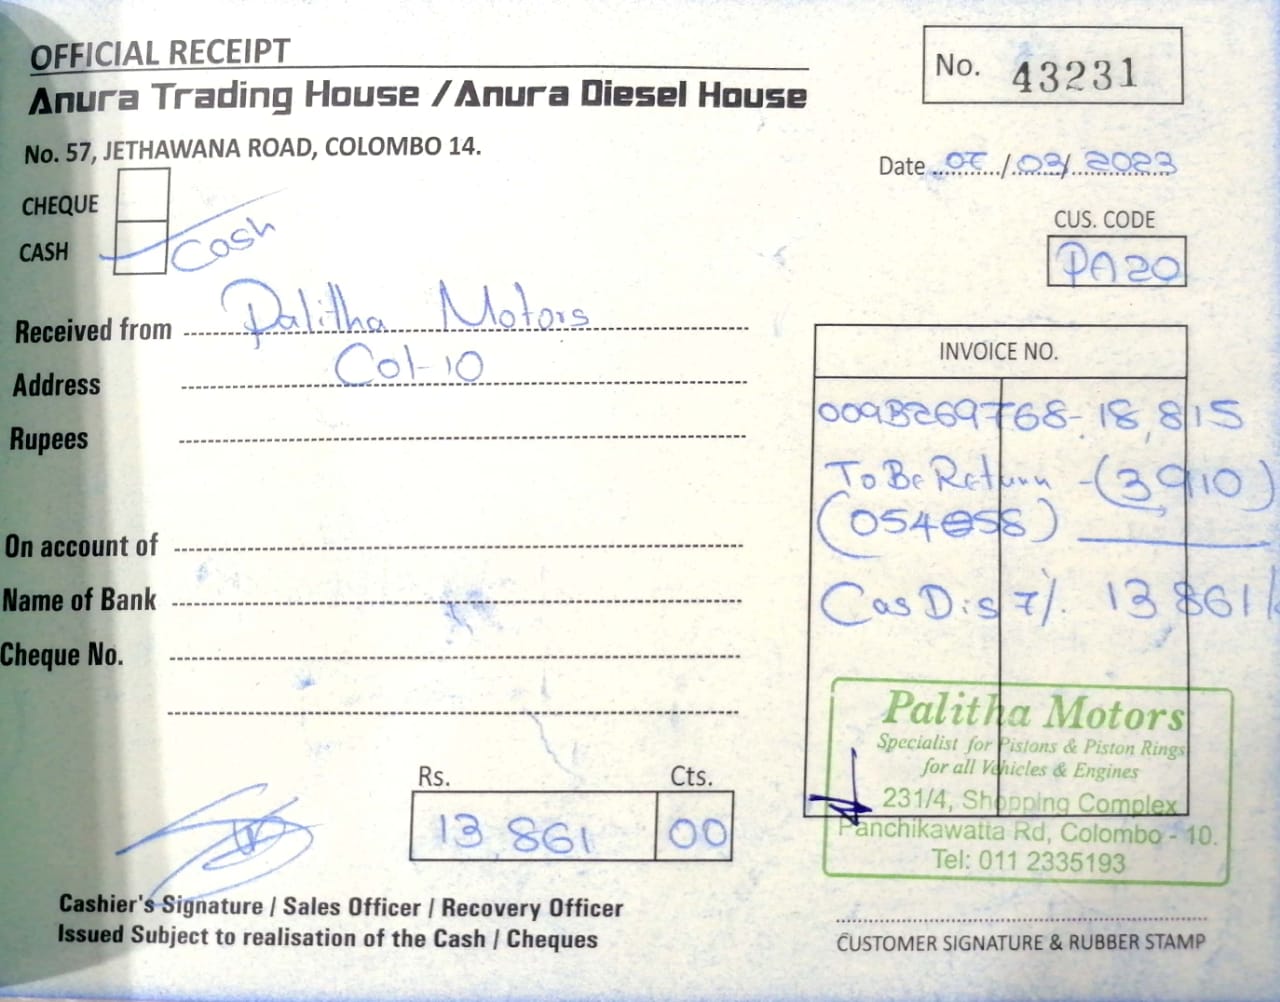 OFFICIAL RECEIPT
Anura Trading House / Anura Diesel House
No. 57, JETHAWANA ROAD, COLOMBO 14.
No. 43231
Date 07/03/2023
CHEQUE
CASH Cash
CUS. CODE
PA20
Received from Palitha Motors
Address Col-10
Rupees
On account of
Name of Bank
Cheque No.
INVOICE NO.
009B269768-18,815
To Be Return -(3,910)
Cas Dis 7%. 13 861/
Palitha Motors
Specialist for Pistons & Piston Rings
for all Vehicles & Engines
231/4, Shopping Complex
Panchikawatta Rd, Colombo - 10.
Tel: 011 2335193
Rs. Cts.
13 861 00
Cashier's Signature / Sales Officer / Recovery Officer
Issued Subject to realisation of the Cash / Cheques
CUSTOMER SIGNATURE & RUBBER STAMP